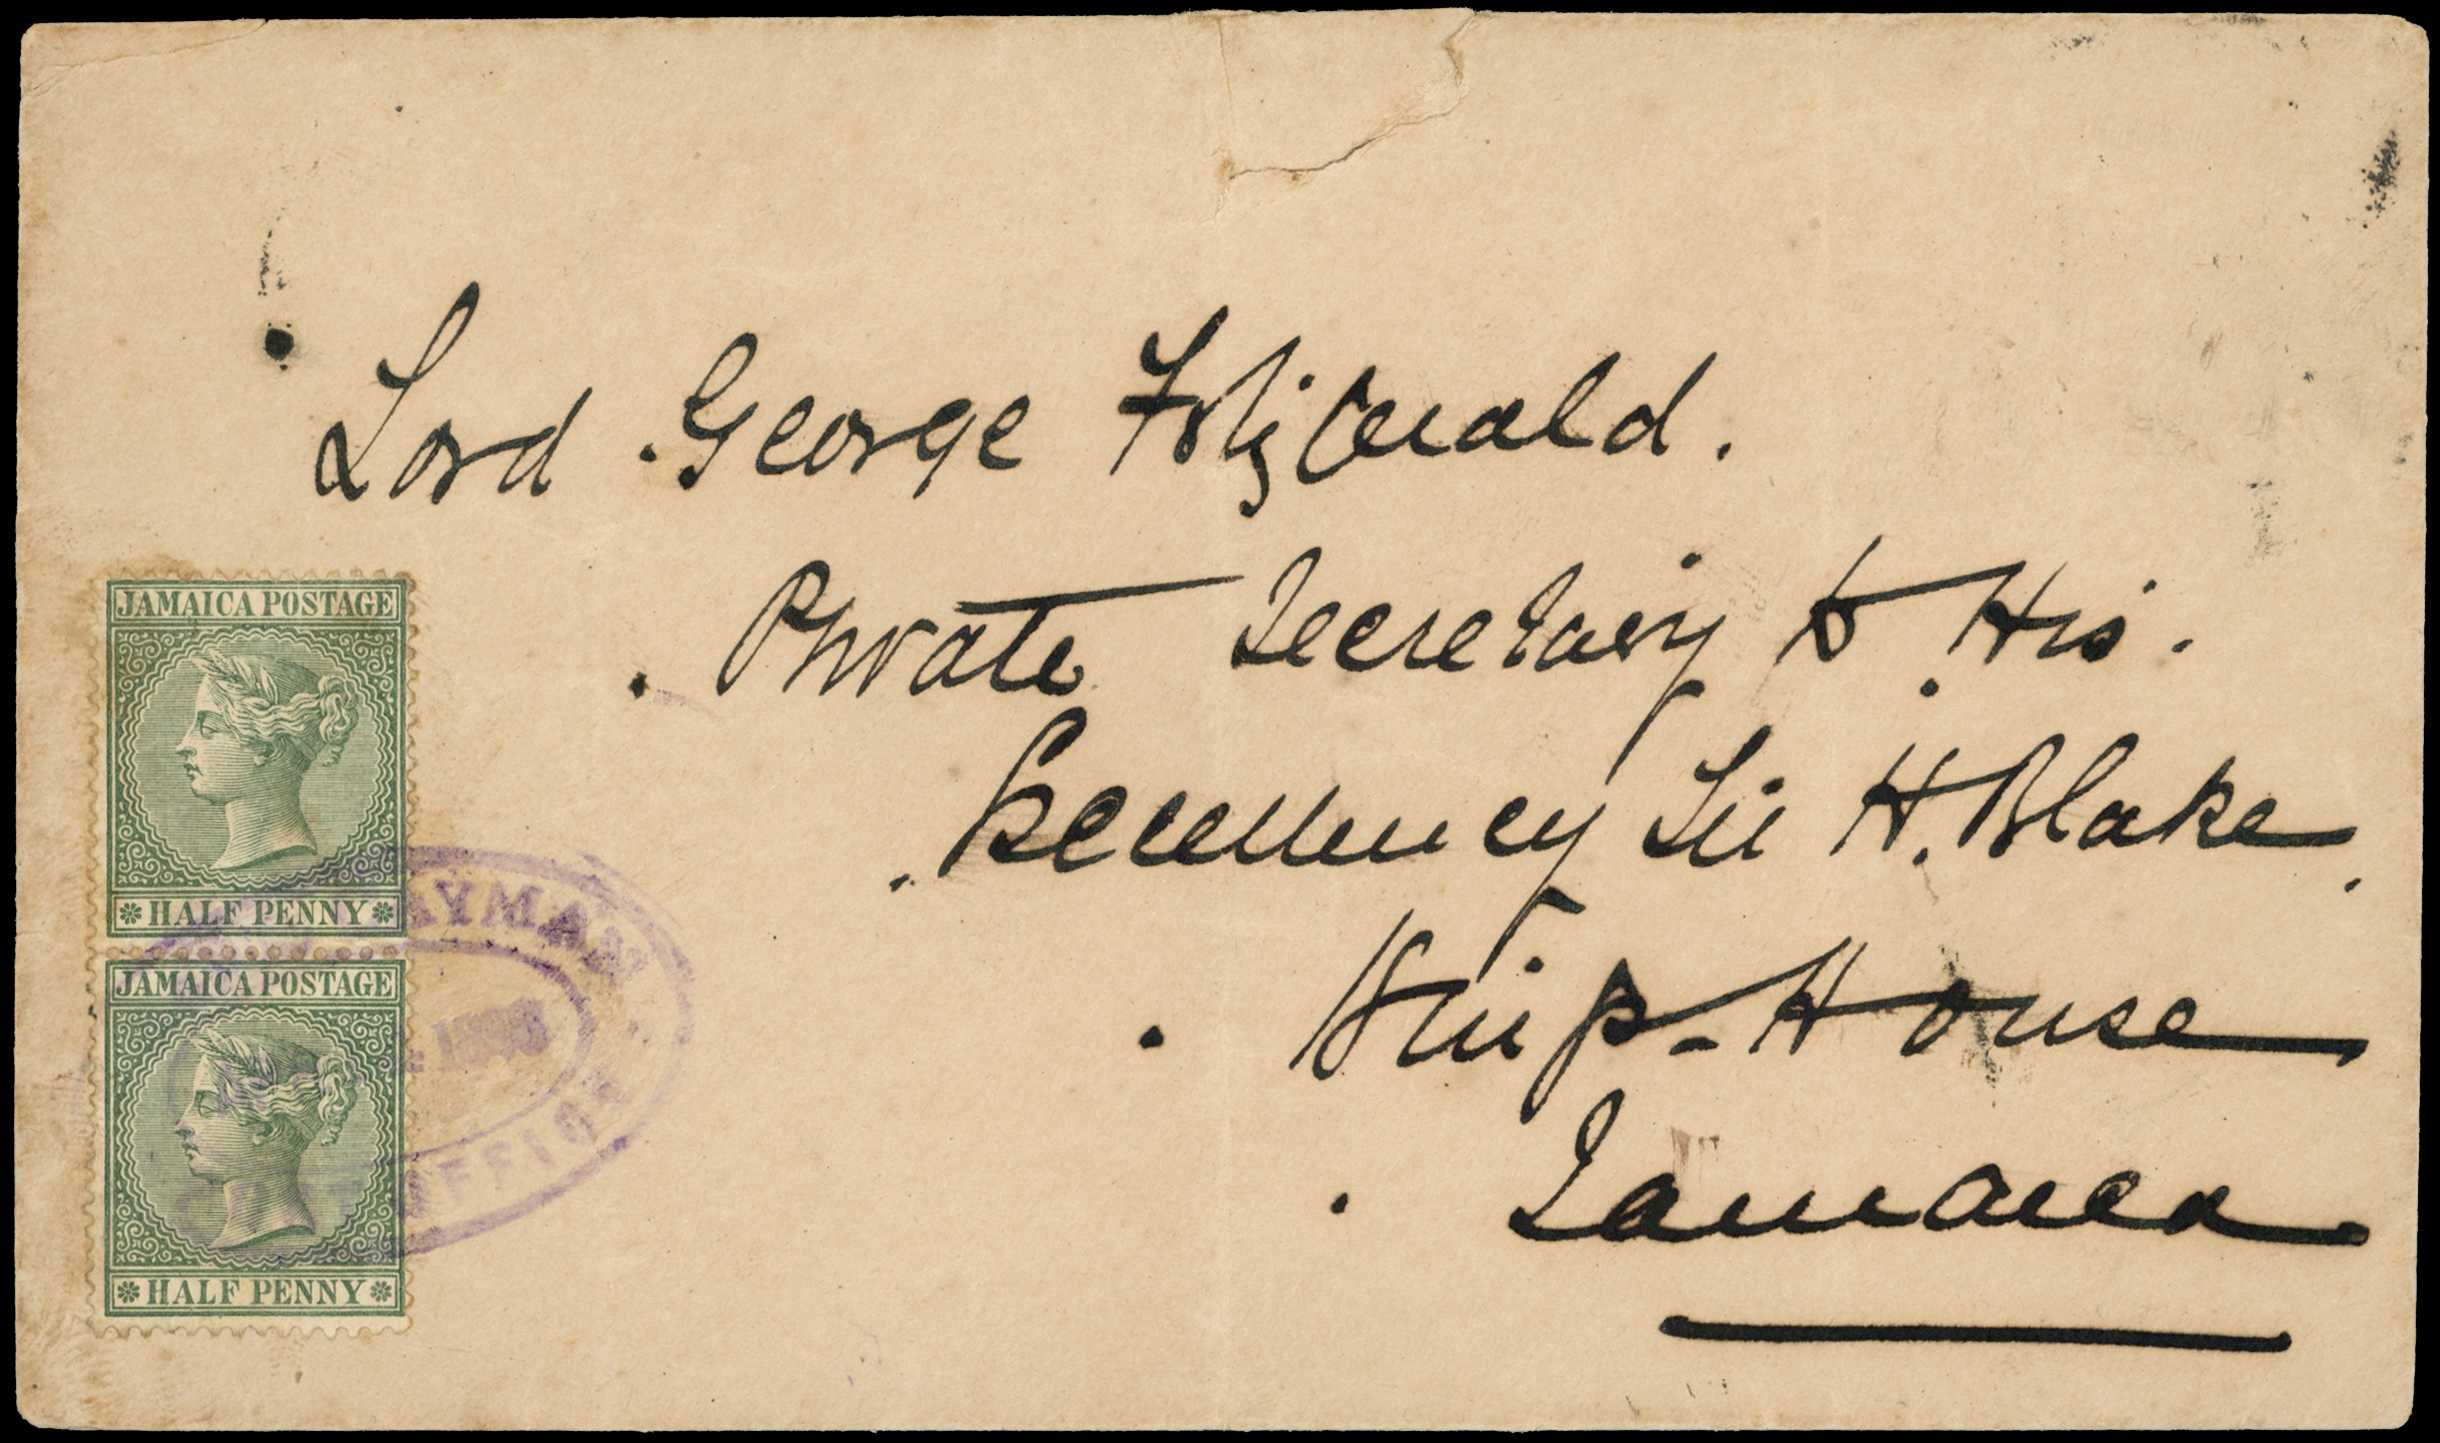 Lord George Fitzgerald.
Private Secretary to His.
Excellency Sir H. Blake
House
Jamaica
JAMAICA POSTAGE
HALF PENNY
JAMAICA POSTAGE
HALF PENNY
CAYMAN
OFFICE